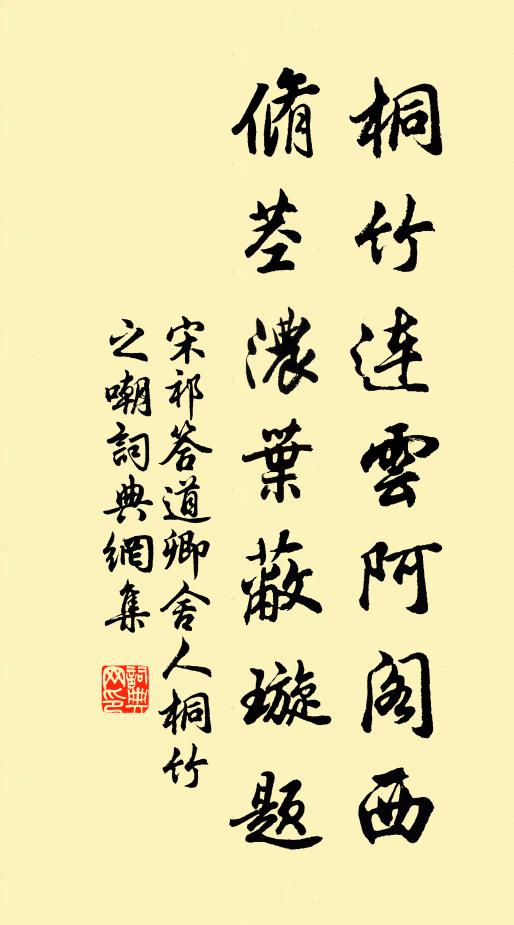 桐竹连雲阿阁西
脩茎濃葉蔽璇题
宋祁答道卿舍人桐竹
之嘲詞典網集
詞典
网印